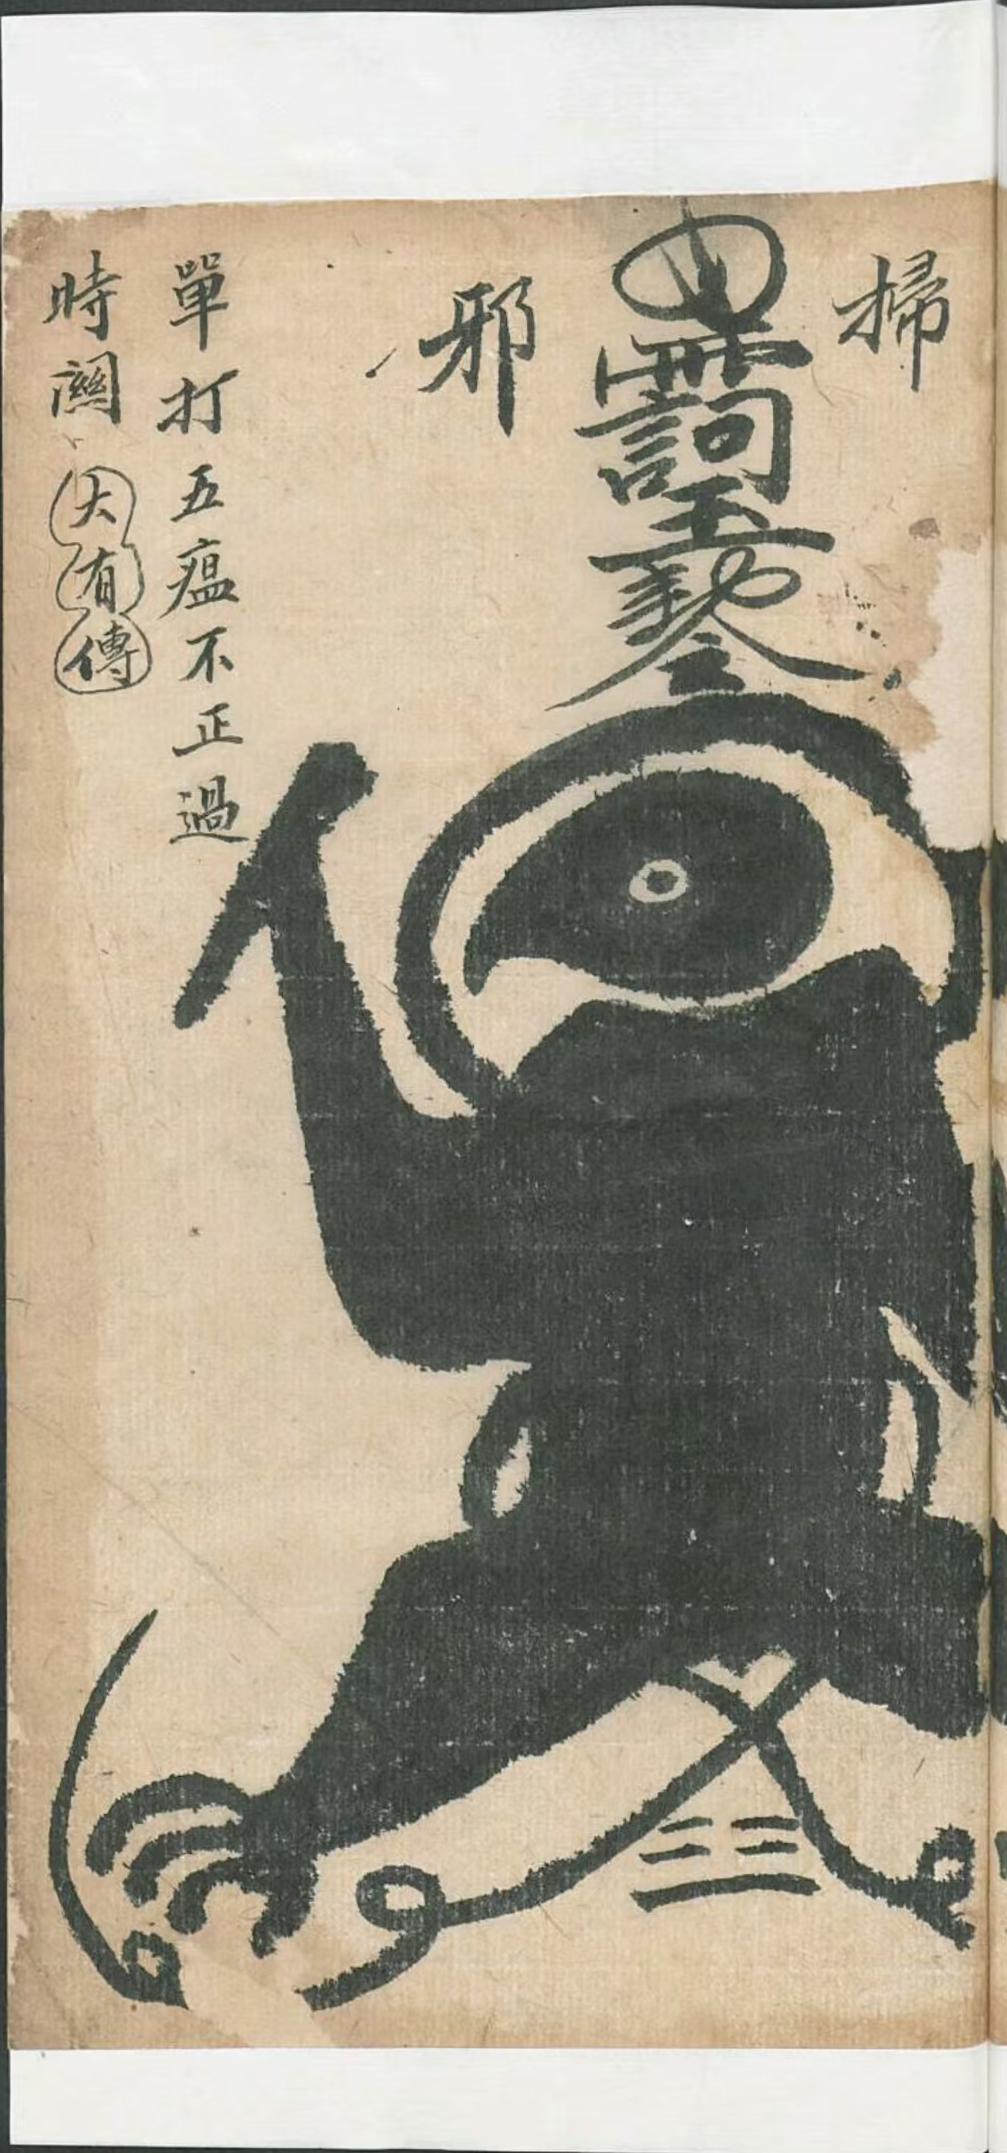 掃
邪
單打五瘟不正過
時關
大有傳